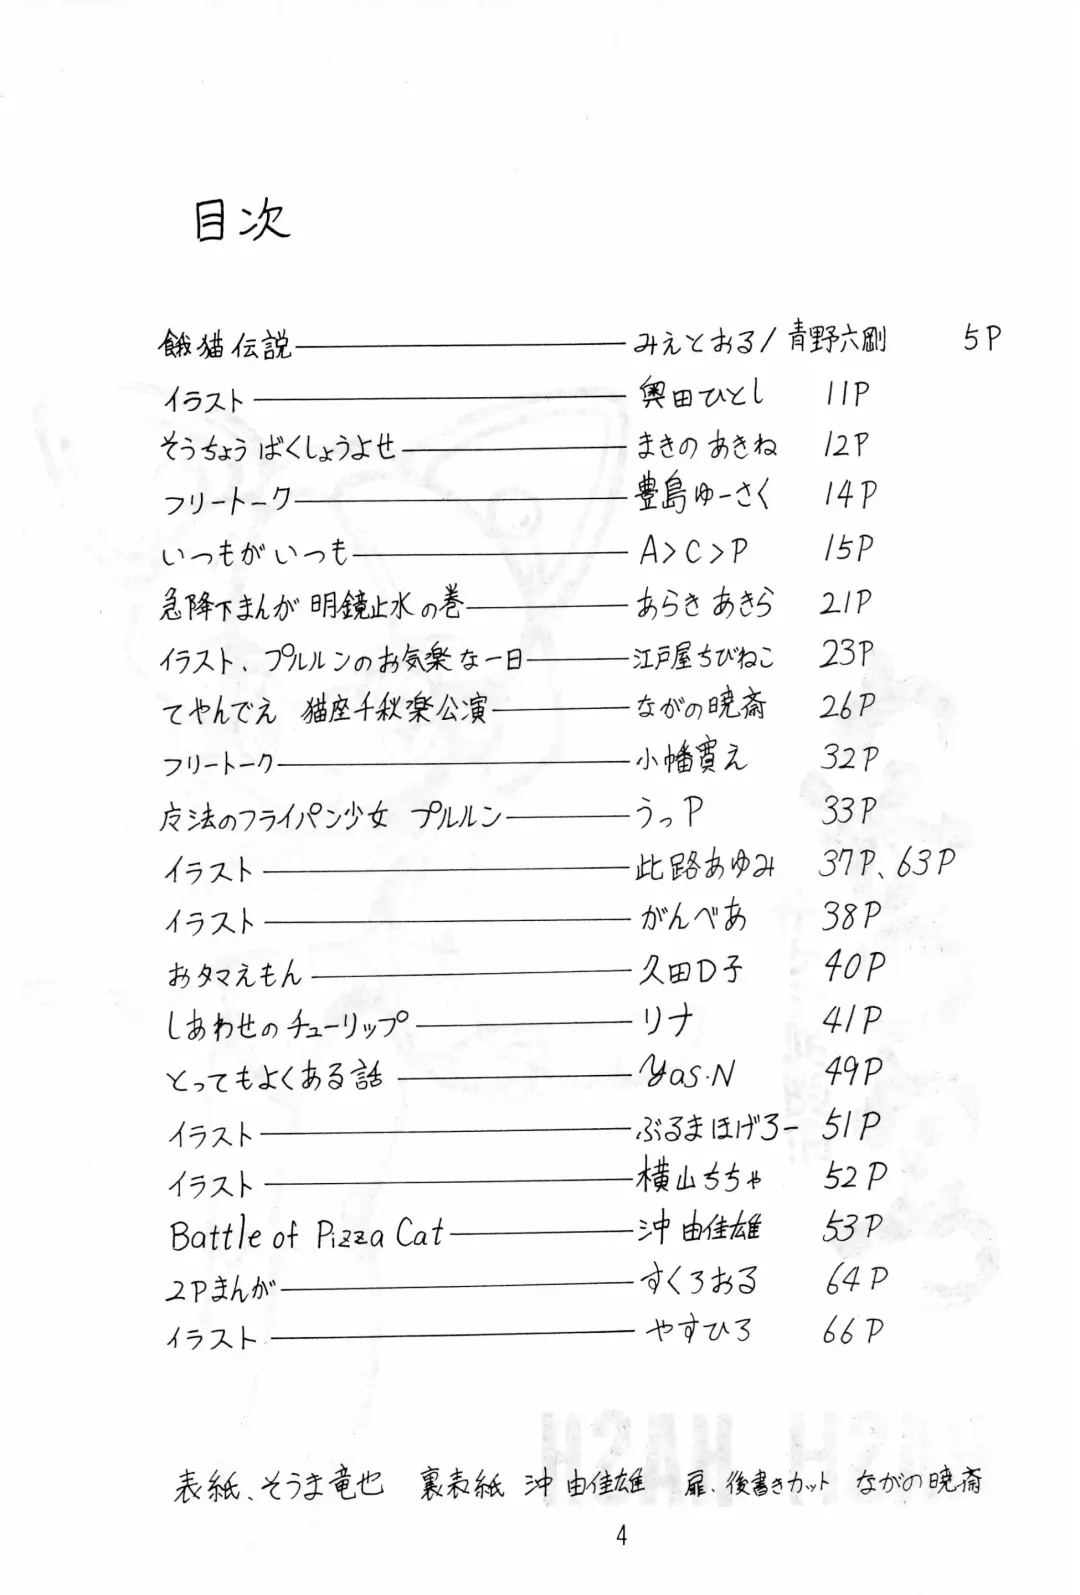 目次
餓猫伝説 みえとおる/青野六剛 5P
イラスト 奥田ひとし 11P
そうちょう ばくしょうよせ まきの あきね 12P
フリートーク 豊島ゆーさく 14P
いつもがいつも A>C>P 15P
急降下まんが 明鏡止水の巻 あらき あきら 21P
イラスト、プルルンのお気楽な一日 江戸屋ちびねこ 23P
てやんでえ 猫座千秋楽公演 ながの暁斎 26P
フリートーク 小幡寛え 32P
法のフライパン少女 プルルン うっP 33P
イラスト 此路あゆみ 37P、63P
イラスト がんべあ 38P
おタマえもん 久田D子 40P
しあわせのチューリップ リナ 41P
とってもよくある話 Yas.N 49P
イラスト ぶるまほげろー 51P
イラスト 横山ちちゃ 52P
Battle of Pizza Cat 沖 由佳雄 53P
2Pまんが すくろおる 64P
イラスト やすひろ 66P
表紙、そうま竜也 裏表紙 沖 由佳雄 扉、後書きカット ながの暁斎
4